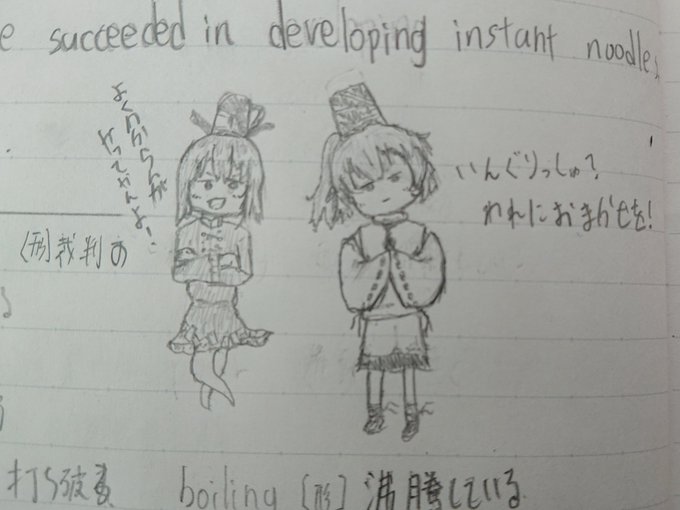 e succeeded in developing instant noodles
よくわからんが
やってやんよ!
いんぐりっしゅ?
われにおまかせを!
(形)裁判の
打ち破る
boiling [形] 沸騰している